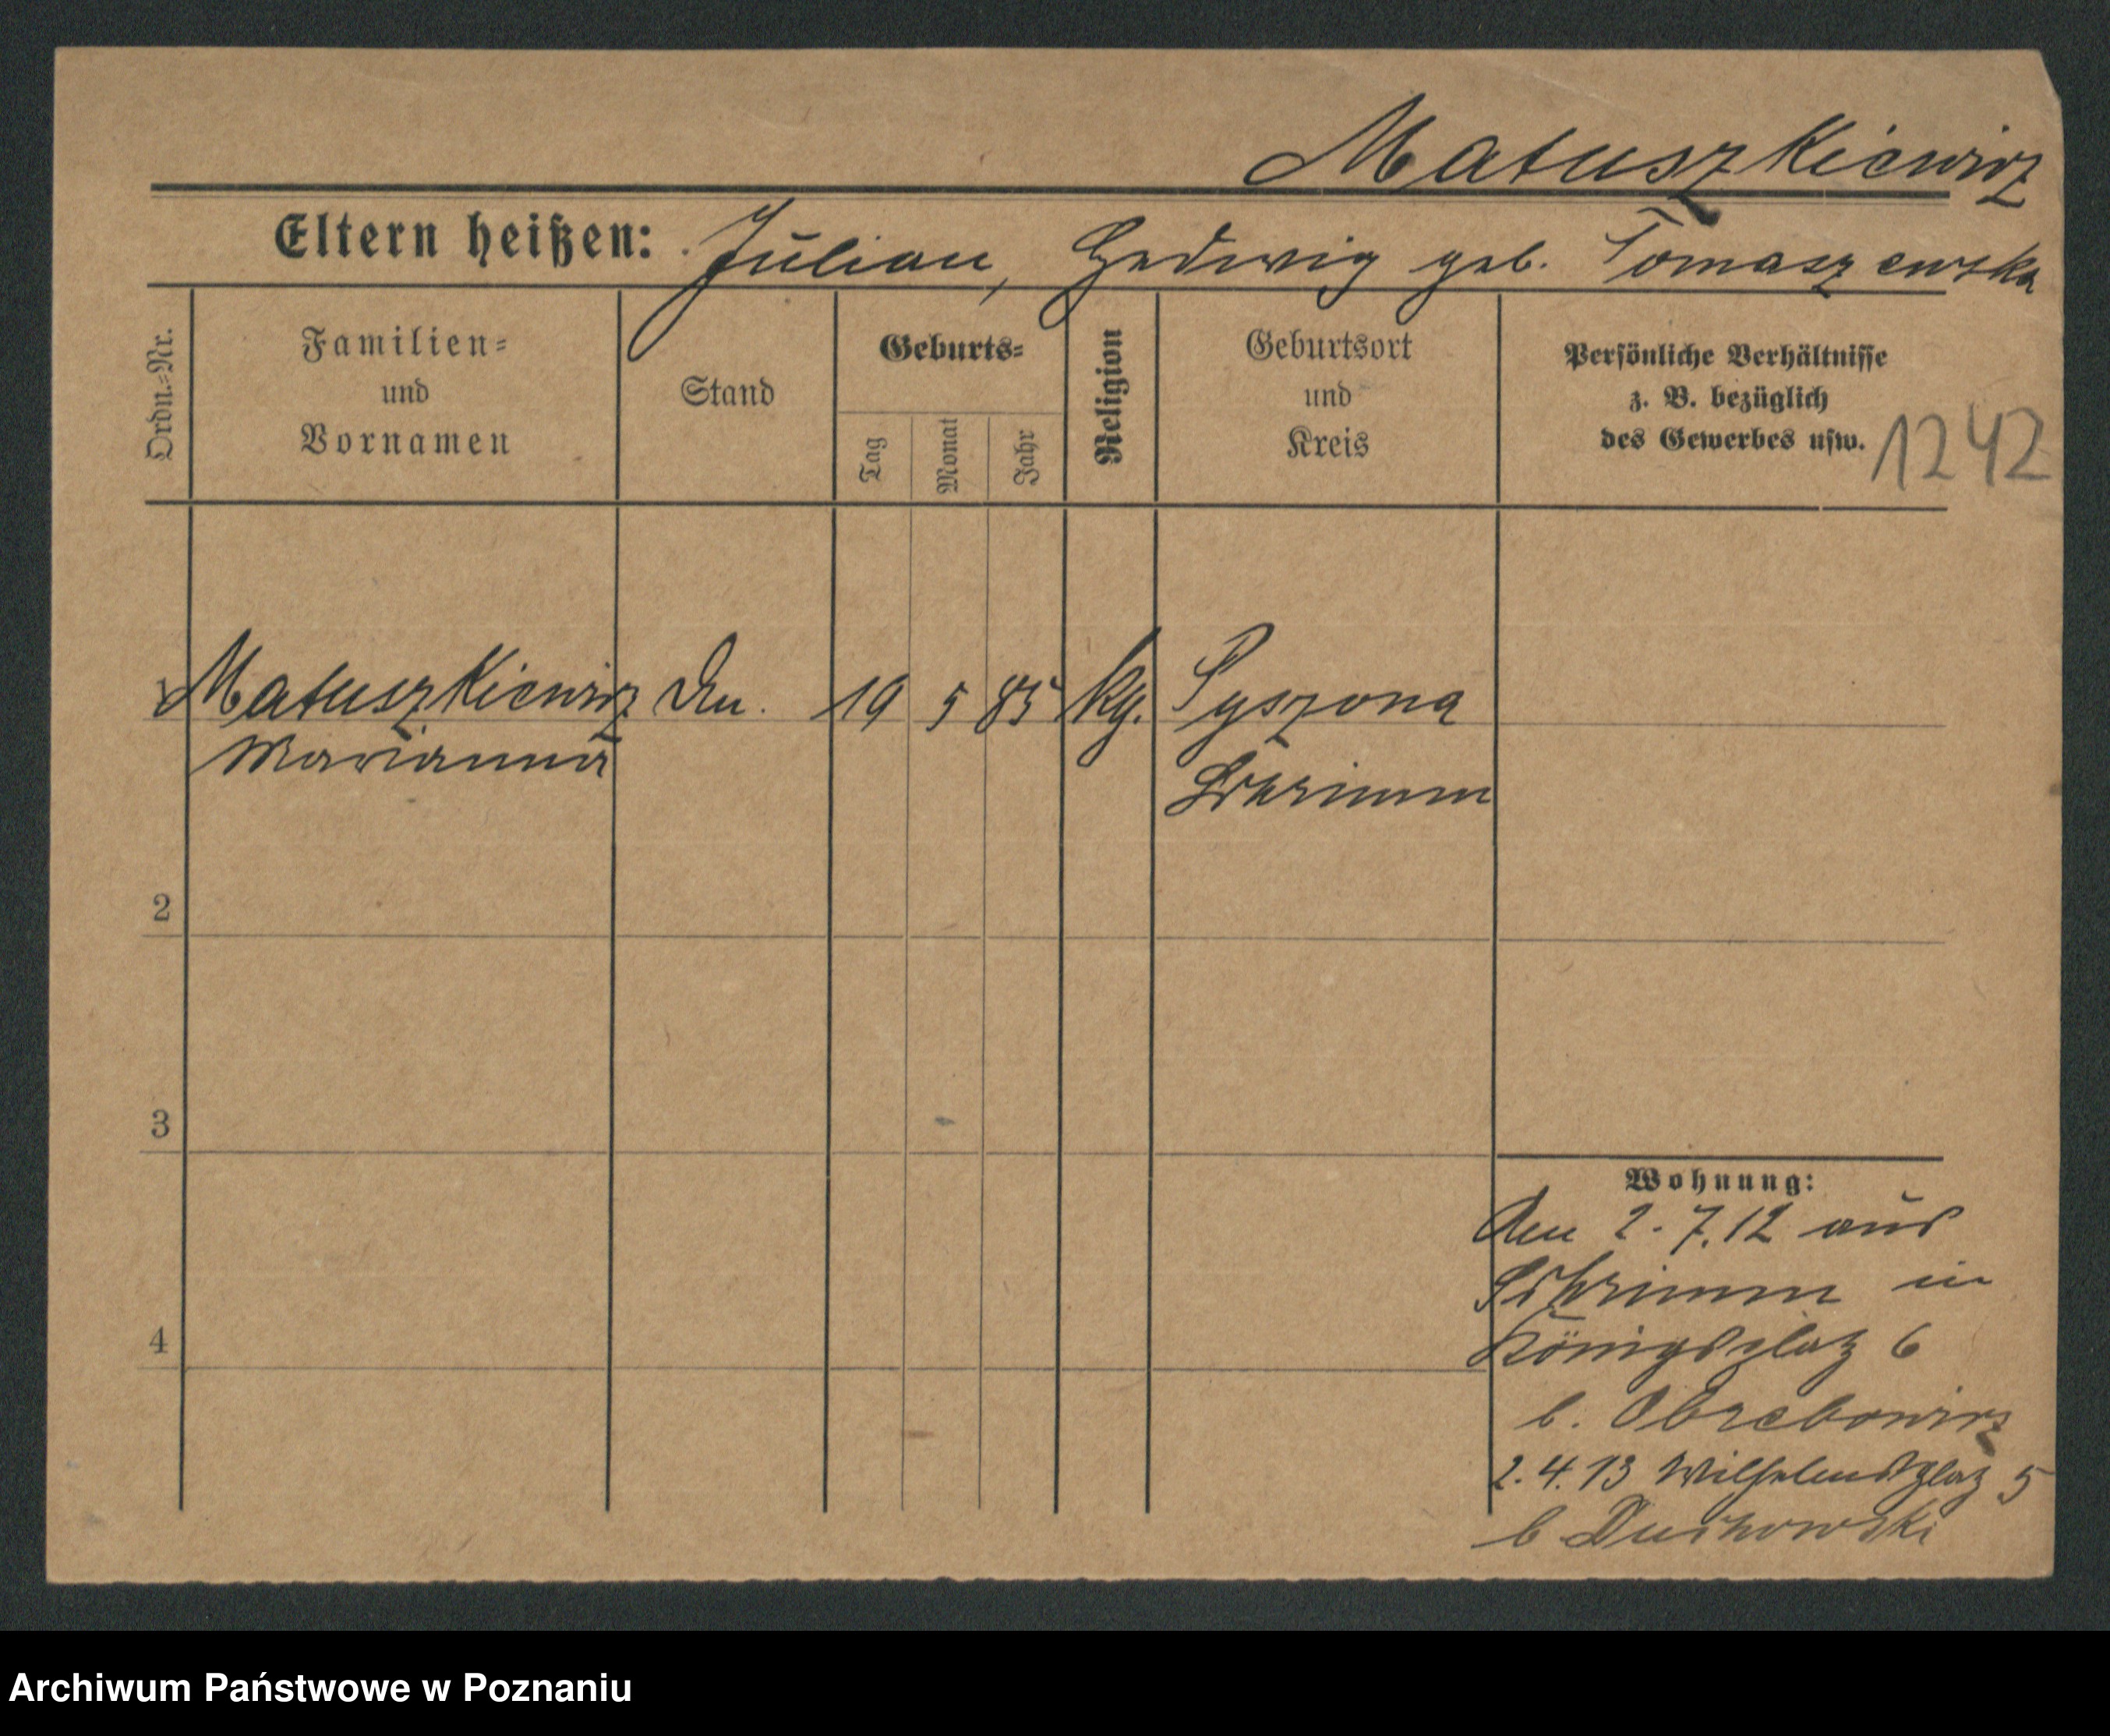 Matuszkiewicz
Eltern heißen: Julian, Hedwig geb. Tomaszewska
Ordn.-Nr.
Familien-
und
Vornamen
Stand
Geburts-
Tag
Monat
Jahr
Religion
Geburtsort
und
Kreis
Persönliche Verhältnisse
z. B. bezüglich
des Gewerbes usw.
1242
1 Matuszkiewicz 19 5 85 kg. Pyszona
Marianna
Schrimm
2
3
4
Wohnung:
Den 2.7.12 aus
Schrimm in
Königsplatz 6
b.
2.4.13 Wilhelmsplatz 5
b
Archiwum Państwowe w Poznaniu